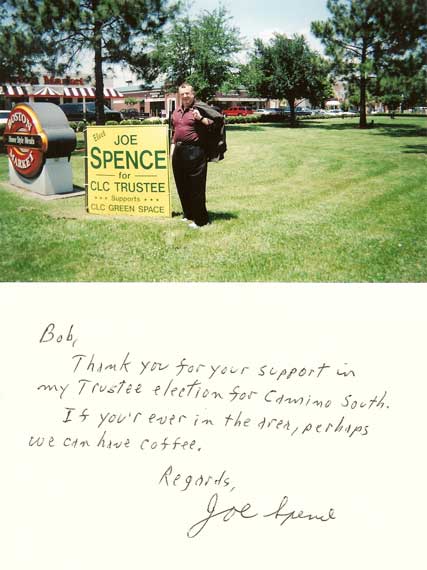 BOSTON
Home Style Meals
MARKET
Elect
JOE
SPENCE
for
CLC TRUSTEE
*** Supports ***
CLC GREEN SPACE
Bob,
Thank you for your support in
my Trustee election for Camino South.
If you're ever in the area, perhaps
we can have coffee.
Regards,
Joe Spence